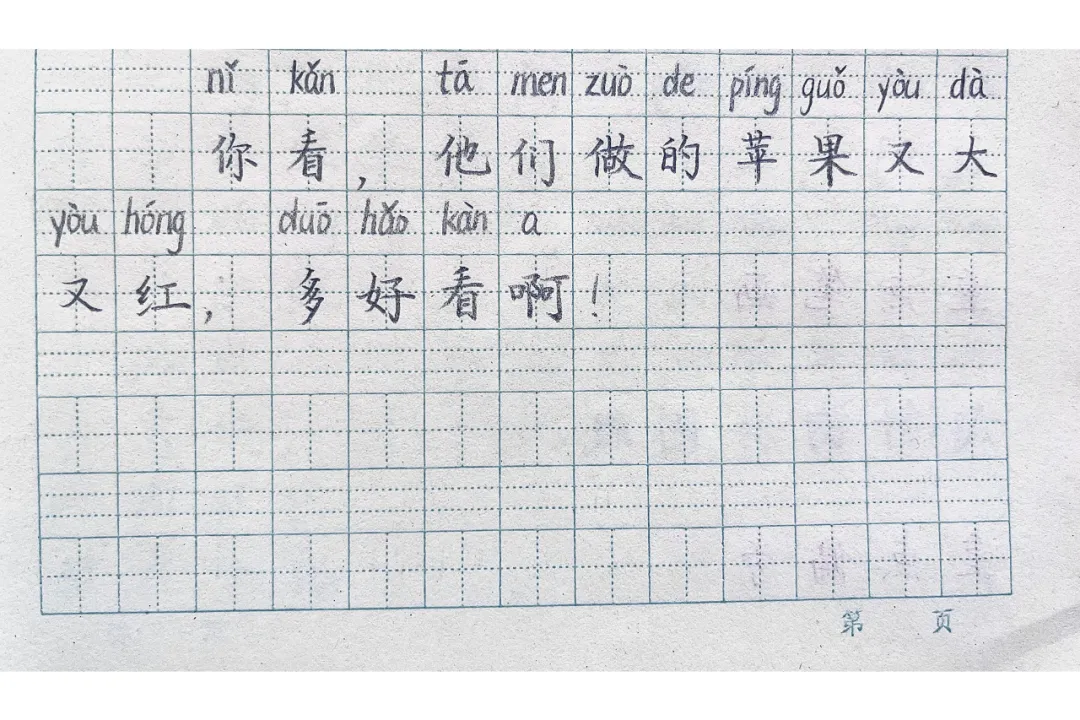 nǐ kǎn tā men zuò de píng guǒ yòu dà
你看，他们做的苹果又大
yòu hóng duō hǎo kàn a
又红，多好看啊！
第 页